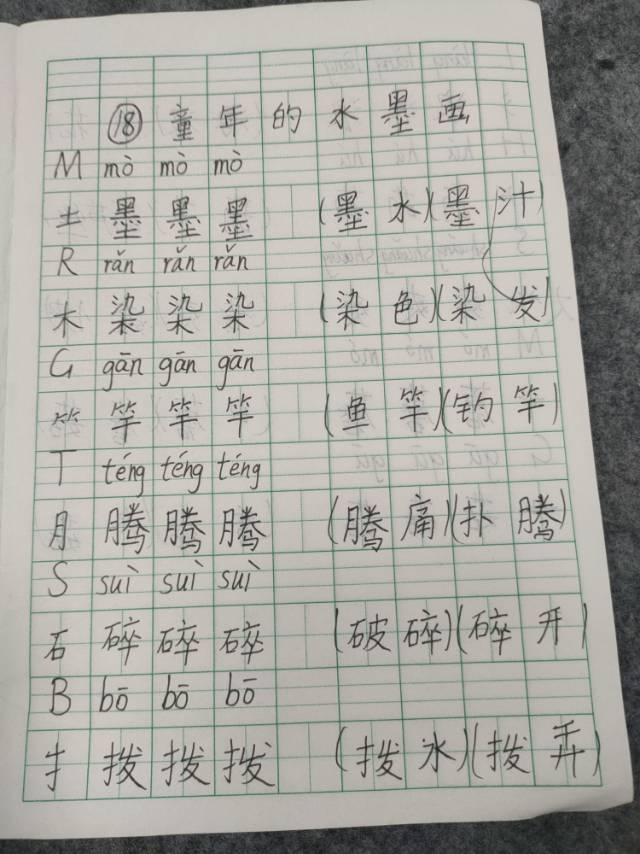 ⑱ 童年的水墨画
M mò mò mò
土 墨 墨 墨 (墨水)(墨汁)
R rǎn rǎn rǎn
木 染 染 染 (染色)(染发)
G gān gān gān
竹 竿 竿 竿 (鱼竿)(钓竿)
T téng téng téng
月 腾 腾 腾 (腾痛)(扑腾)
S suì suì suì
石 碎 碎 碎 (破碎)(碎开)
B bō bō bō
扌 拨 拨 拨 (拨水)(拨弄)